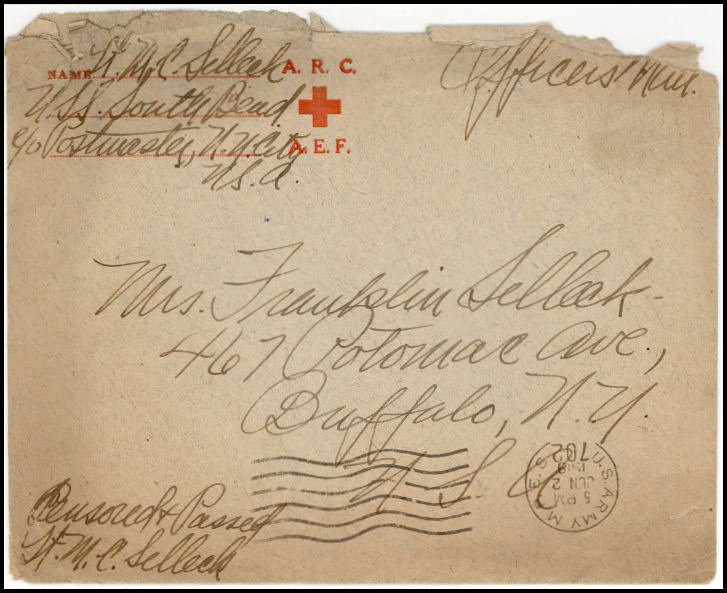 NAME Lt. M. C. Selleck A. R. C.
U.S.S. South Bend.
c/o Postmaster, N.Y. City A. E. F.
U.S.A.
Officers' Mail.
Mrs. Franklin Selleck-
467 Potomac Ave,
Buffalo, N.Y.
U S A
U.S. ARMY M.E.S.
702
1919
JUN 2
5 PM
Censored & Passed
Lt. M. C. Selleck